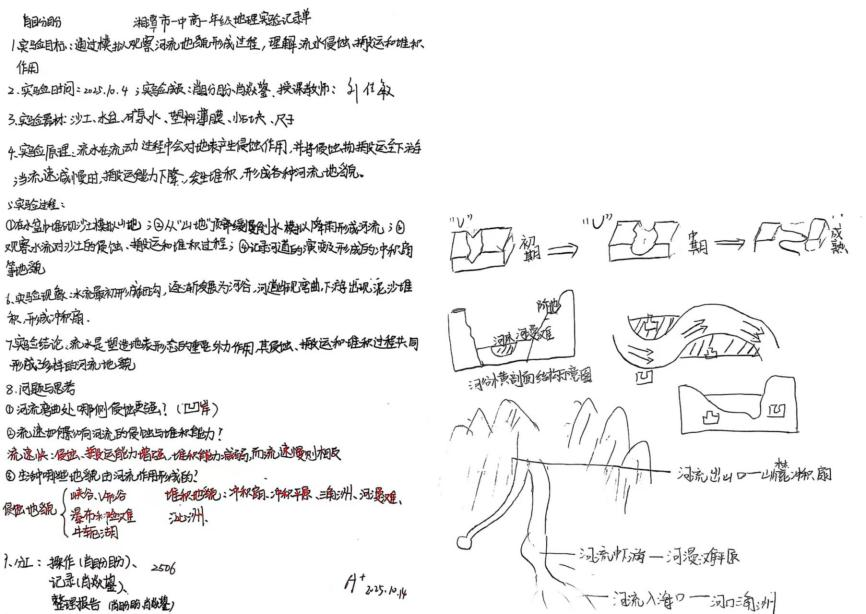 肖盼盼 湘乡市一中高一年级地理实验记录单
1.实验目标:通过模拟观察河流地貌形成过程,理解流水侵蚀、搬运和堆积
作用
2.实验时间:2025.10.4;实验成员:肖盼盼、肖 授课教师:
3.实验器材:沙土、水盆、矿泉水、塑料薄膜、小石块、尺子
4.实验原理:流水在流动过程中会对地表产生侵蚀作用,并将侵蚀物搬运至下游
当流速减慢时,搬运能力下降,发生堆积,形成各种河流地貌。
5.实验过程:
①在水盆中堆砌沙土模拟山地;②从“山地”顶部缓慢倒水模拟降雨形成河流;③
观察水流对沙土的侵蚀、搬运和堆积过程;④记录河道的演变及形成的冲积扇
等地貌
6.实验现象:水流最初形成细沟,逐渐发展为河谷,河道出现弯曲,下游出现泥沙堆
积,形成冲积扇.
7.实验结论:流水是塑造地表形态的重要外力作用,其侵蚀、搬运和堆积过程共同
形成多样的河流地貌
8.问题与思考
①河流弯曲处哪侧侵蚀更强?(凹岸)
②流速如何影响河流的侵蚀与堆积能力?
流速快:侵蚀、搬运能力增强,堆积能力减弱,而流速慢则相反
③生活中哪些地貌由河流作用形成的?
侵蚀地貌
峡谷、V形谷 堆积地貌:冲积扇、冲积平原、三角洲、河漫滩、
瀑布和险滩 江心洲、
牛轭湖
9.分工:操作(肖盼盼)、 2506
记录(肖 )、
整理报告(肖盼盼、肖 )
A+ 2025.10.14
"V" 初期 "U" 中期 成熟
阶地
河床 河漫滩
河谷横剖面结构示意图
凹
凸
凹
凸 凹
河流出山口—山麓冲积扇
河流中下游—河漫滩平原
河流入海口—河口三角洲